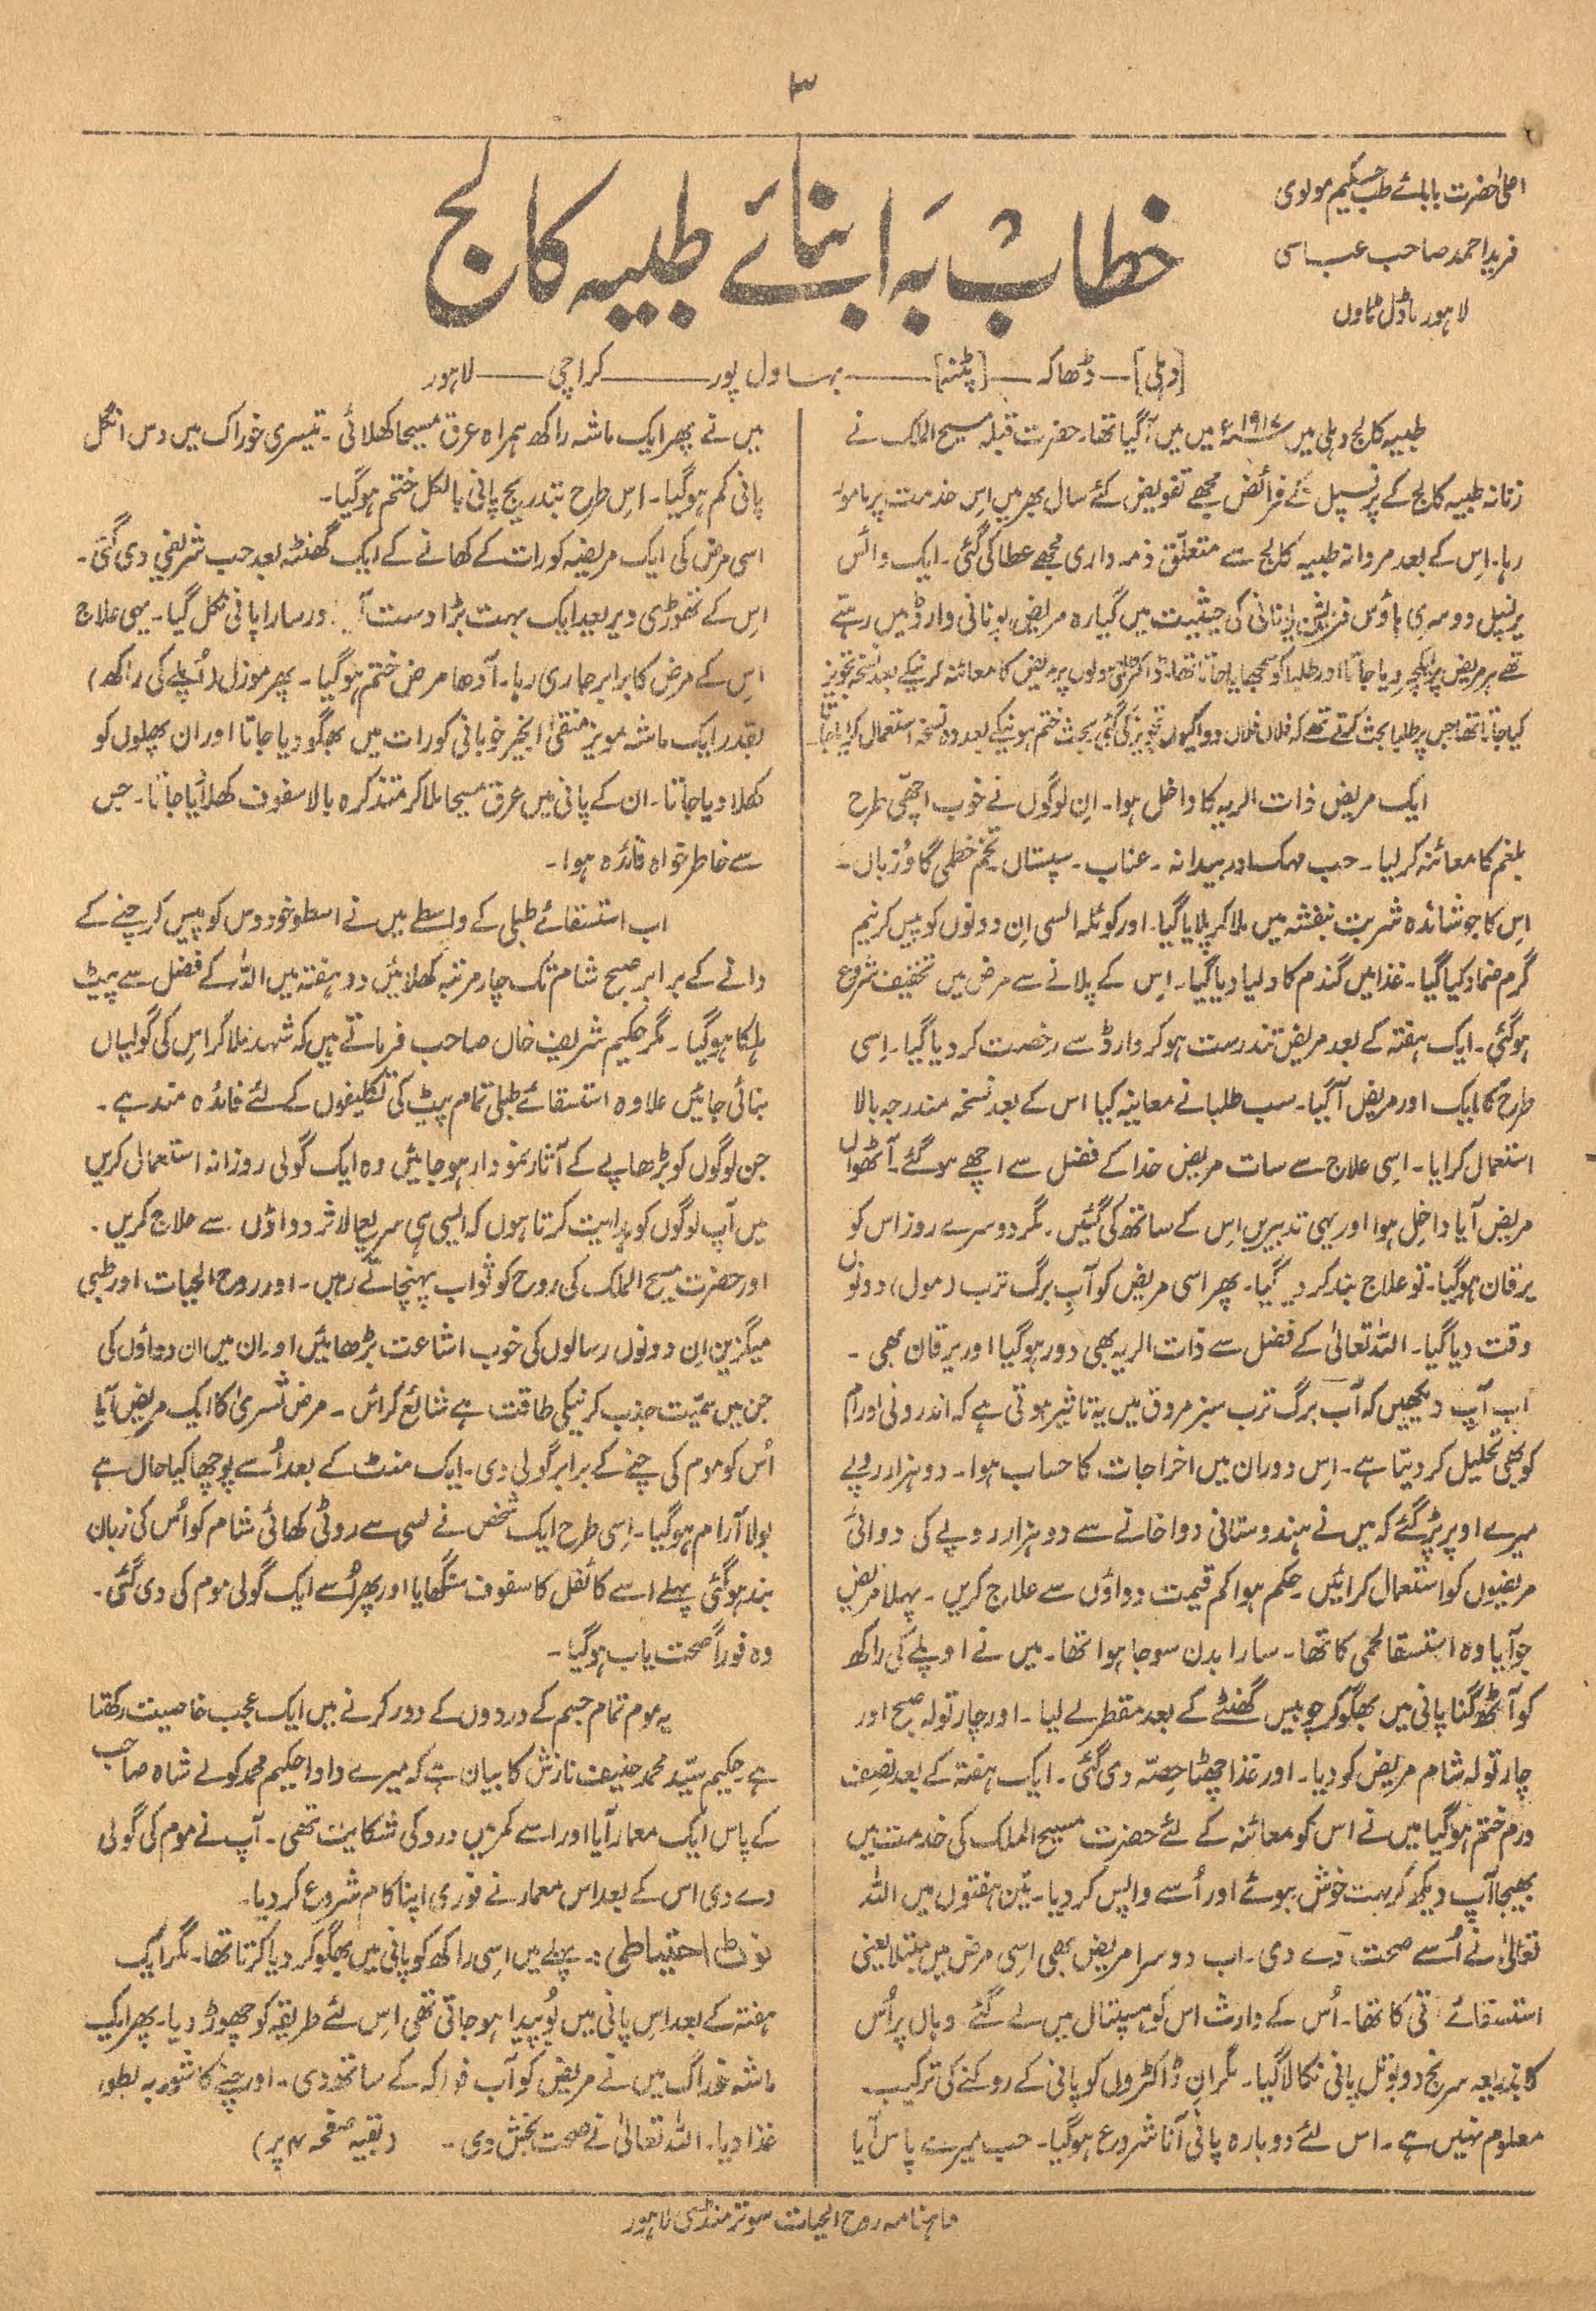 ۳
اعلیٰحضرت بابائے طب حکیم مولوی
فرید احمد صاحب عباسی
لاہور ماڈل ٹاؤن
خطاب بہ ابنائے طبیہ کالج
[دہلی] — ڈھاکہ — [پٹنہ] — بہاول پور — کراچی — لاہور
طبیہ کالج دہلی میں ۱۹۱۷ء میں میں آگیا تھا۔ حضرت قبلہ مسیح الملک نے
زنانہ طبیہ کالج کے پرنسپل کے فرائض مجھے تفویض کئے سال بھر میں اِس خدمت پر مامور
رہا۔ اِس کے بعد مردانہ طبیہ کالج سے متعلّق ذمہ داری مجھے عطا کی گئی۔ ایک وائس
پرنسپل دوسری ہاؤس فزیشن یونانی کی حیثیت میں گیارہ مریض یونانی وارڈ میں رہتے
تھے ہر مریض پر لیکچر دیا جاتا اور طلبا کو سمجھایا جاتا تھا۔ ڈاکٹری اصولوں پر مریض کا معائنہ کرنیکے بعد نسخہ تجویز
کیا جاتا تھا جس پر طلبا بحث کرتے تھے کہ فلاں فلاں دوا کیوں تجویز کی گئی بحث ختم ہونیکے بعد وہ نسخہ استعمال کرایا جاتا
ایک مریض ذات الریہ کا داخل ہوا۔ اِن لوگوں نے خوب اچھّی طرح
بلغم کا معائنہ کرلیا۔ حب مہک اور بہیدانہ۔ عناب۔ سپستاں تخم خطمی گاؤزباں۔
اِس کا جوشاندہ شربت بنفشہ میں ملا کر پلایا گیا۔ اور کوئلہ السی اِن دونوں کو پیس کر نیم
گرم ضماد کیا گیا۔ غذا میں گندم کا دلیا دیا گیا۔ اِس کے پلانے سے مرض میں تخفیف شروع
ہوگئی۔ ایک ہفتہ کے بعد مریض تندرست ہوکر وارڈ سے رخصت کر دیا گیا۔ اِسی
طرح کا ایک اور مریض آگیا۔ سب طلبا نے معاینہ کیا اس کے بعد نسخہ مندرجہ بالا
استعمال کرایا۔ اِسی علاج سے سات مریض خدا کے فضل سے اچھے ہوگئے۔ آٹھواں
مریض آیا داخل ہوا اور یہی تدبیریں اِس کے ساتھ کی گئیں۔ مگر دوسرے روز اس کو
یرقان ہوگیا۔ تو علاج بند کر دیا گیا۔ پھر اسی مریض کو آبِ برگ ترب (مولی) دونوں
وقت دیا گیا۔ اللہ تعالیٰ کے فضل سے ذات الریہ بھی دور ہوگیا اور یرقان بھی۔
اب آپ دیکھیں کہ آب برگ ترب سبز مروق میں یہ تاثیر ہوتی ہے کہ اندرونی اورام
کو بھی تحلیل کر دیتا ہے۔ اِس دوران میں اخراجات کا حساب ہوا۔ دو ہزار روپے
میرے اوپر پڑ گئے کہ میں نے ہندوستانی دواخانے سے دو ہزار روپے کی دوائی
مریضوں کو استعمال کرائیں۔ حکم ہوا کم قیمت دواؤں سے علاج کریں۔ پہلا مریض
جو آیا وہ استسقا لحمی کا تھا۔ سارا بدن سوجا ہوا تھا۔ میں نے اوپلے کی راکھ
کو آٹھ گنا پانی میں بھگو کر چوبیس گھنٹے کے بعد مقطر لے لیا۔ اور چار تولہ صبح اور
چار تولہ شام مریض کو دیا۔ اور غذا چھٹا حِصّہ دی گئی۔ ایک ہفتہ کے بعد نصف
ورم ختم ہوگیا میں نے اس کو معائنہ کے لئے حضرت مسیح الملک کی خدمت میں
بھیجا آپ دیکھ کر بہت خوش ہوئے اور اُسے واپس کر دیا۔ تین ہفتوں میں اللہ
تعالیٰ نے اُسے صحت دے دی۔ اب دوسرا مریض بھی اِسی مرض میں مبتلا یعنی
استسقائے زقی کا تھا۔ اُس کے وارث اس کو ہسپتال میں لے گئے وہاں پر اُس
کا بذریعہ سرنج دو بوتل پانی نکالا گیا۔ مگر ان ڈاکٹروں کو پانی کے روکنے کی ترکیب
معلوم نہیں ہے۔ اس لئے دوبارہ پانی آنا شروع ہوگیا۔ جب میرے پاس آیا
میں نے پھر ایک ماشہ راکھ ہمراہ عرق مسیحا کھلائی۔ تیسری خوراک میں دس انگل
پانی کم ہوگیا۔ اِس طرح بتدریج پانی بالکل ختم ہوگیا۔
اسی مرض کی ایک مریضہ کو رات کے کھانے کے ایک گھنٹہ بعد حب شریفی دی گئی۔
اِس کے تھوڑی دیر بعد ایک بہت بڑا دست آ اور سارا پانی نکل گیا۔ یہی علاج
اِس کے مرض کا برابر جاری رہا۔ آدھا مرض ختم ہوگیا۔ پھر موزل (اُپلے کی راکھ)
بقدر ایک ماشہ مویز منقیٰ انجیر خوبانی کو رات میں بھگو دیا جاتا اور ان پھلوں کو
کھلا دیا جاتا۔ ان کے پانی میں عرق مسیحا ملا کر متذکرہ بالا سفوف کھلایا جاتا۔ جس
سے خاطر خواہ فائدہ ہوا۔
اب استسقائے طبلی کے واسطے میں نے اسطوخودوس کو پیس کر چنے کے
دانے کے برابر صبح شام تک چار مرتبہ کھلائیں دو ہفتہ میں اللہ کے فضل سے پیٹ
ہلکا ہوگیا۔ مگر حکیم شریف خاں صاحب فرماتے ہیں کہ شہد ملا کر اِس کی گولیاں
بنائی جائیں علاوہ استسقائے طبلی تمام پیٹ کی تکلیفوں کے لئے فائدہ مند ہے۔
جن لوگوں کو بڑھاپے کے آثار نمودار ہوجائیں وہ ایک گولی روزانہ استعمال کریں
میں آپ لوگوں کو ہدایت کرتا ہوں کہ ایسی ہی سریع الاثر دواؤں سے علاج کریں۔
اور حضرت مسیح الملک کی روح کو ثواب پہنچاتے رہیں۔ اور روح الحیات اور طبی
میگزین اِن دونوں رسالوں کی خوب اشاعت بڑھائیں اور ان میں ان دواؤں کی
جن میں سمیّت جذب کرنیکی طاقت ہے شائع کرائیں۔ مرض شریٰ کا ایک مریض آیا
اُس کو موم کی چنے کے برابر گولی دی۔ ایک منٹ کے بعد اُسے پوچھا کیا حال ہے
بولا آرام ہوگیا۔ اِسی طرح ایک شخص نے لسی سے روٹی کھائی شام کو اُس کی زبان
بند ہوگئی پہلے اسے کائفل کا سفوف سنگھایا اور پھر اُسے ایک گولی موم کی دی گئی۔
وہ فوراً صحت یاب ہوگیا۔
یہ موم تمام جسم کے دردوں کے دور کرنے میں ایک عجب خاصیت رکھتا
ہے۔ حکیم سیّد محمد حنیف نازش کا بیان ہے کہ میرے دادا حکیم محمد کولے شاہ صاحب
کے پاس ایک معمار آیا اور اسے کمر میں درد کی شکایت تھی۔ آپ نے موم کی گولی
دے دی اس کے بعد اس معمار نے فوری اپنا کام شروع کر دیا۔
نوٹ احتیاطی:۔ پہلے میں اسی راکھ کو پانی میں بھگو کر دیا کرتا تھا۔ مگر ایک
ہفتہ کے بعد اِس پانی میں بُو پیدا ہوجاتی تھی اِس لئے طریقہ کو چھوڑ دیا۔ پھر ایک
ماشہ خوراک میں نے مریض کو آب فواکہ کے ساتھ دی۔ اور چنے کا شوربہ بطور
غذا دیا۔ اللہ تعالیٰ نے صحت بخش دی۔ (بقیہ صفحہ ۴ پر)
ماہنامہ روح الحیات سوتر منڈی لاہور